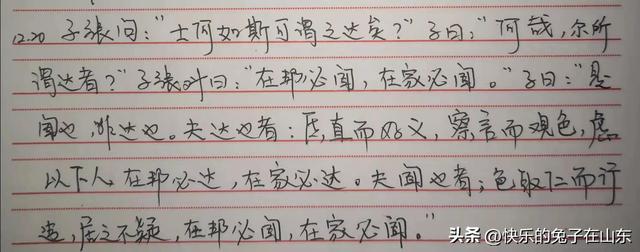 12.20 子張问:"士何如斯可谓之达矣?"子曰:"何哉,尔所
谓达者?"子張对曰:"在邦必闻,在家必闻。"子曰:"是
闻也,非达也。夫达也者:质直而好义,察言而观色,虑
以下人,在邦必达,在家必达。夫闻也者;色取仁而行
违,居之不疑,在邦必闻,在家必闻。"
头条 @快乐的兔子在山东